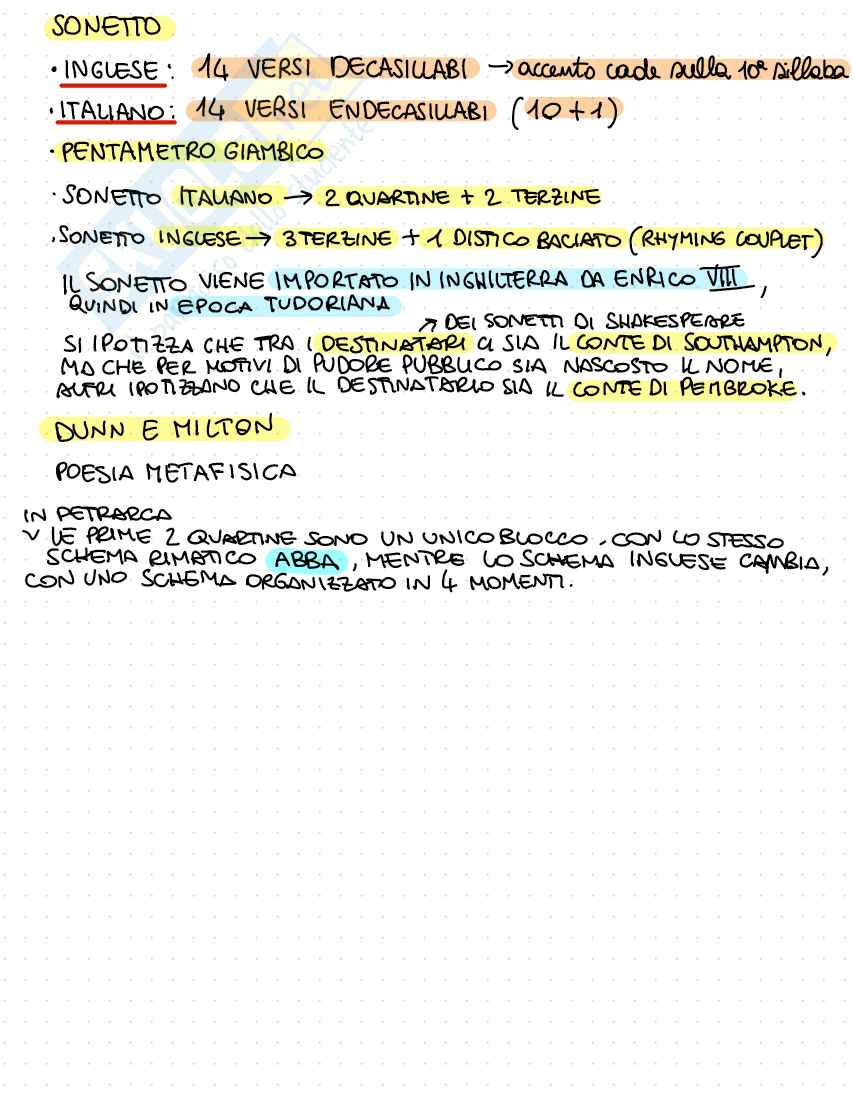 SONETTO
· INGLESE: 14 VERSI DECASILLABI → accento cade sulla 10ª sillaba
· ITALIANO: 14 VERSI ENDECASILLABI (10+1)
· PENTAMETRO GIAMBICO
· SONETTO ITALIANO → 2 QUARTINE + 2 TERZINE
· SONETTO INGLESE → 3 TERZINE + 1 DISTICO BACIATO (RHYMING COUPLET)
IL SONETTO VIENE IMPORTATO IN INGHILTERRA DA ENRICO VIII,
QUINDI IN EPOCA TUDORIANA
↗ DEI SONETTI DI SHAKESPEARE
SI IPOTIZZA CHE TRA I DESTINATARI CI SIA IL CONTE DI SOUTHAMPTON,
MA CHE PER MOTIVI DI PUDORE PUBBLICO SIA NASCOSTO IL NOME,
ALTRI IPOTIZZANO CHE IL DESTINATARIO SIA IL CONTE DI PEMBROKE.
DUNN E MILTON
POESIA METAFISICA
IN PETRARCA
LE PRIME 2 QUARTINE SONO UN UNICO BLOCCO. CON LO STESSO
SCHEMA RIMATICO ABBA, MENTRE LO SCHEMA INGLESE CAMBIA,
CON UNO SCHEMA ORGANIZZATO IN 4 MOMENTI.